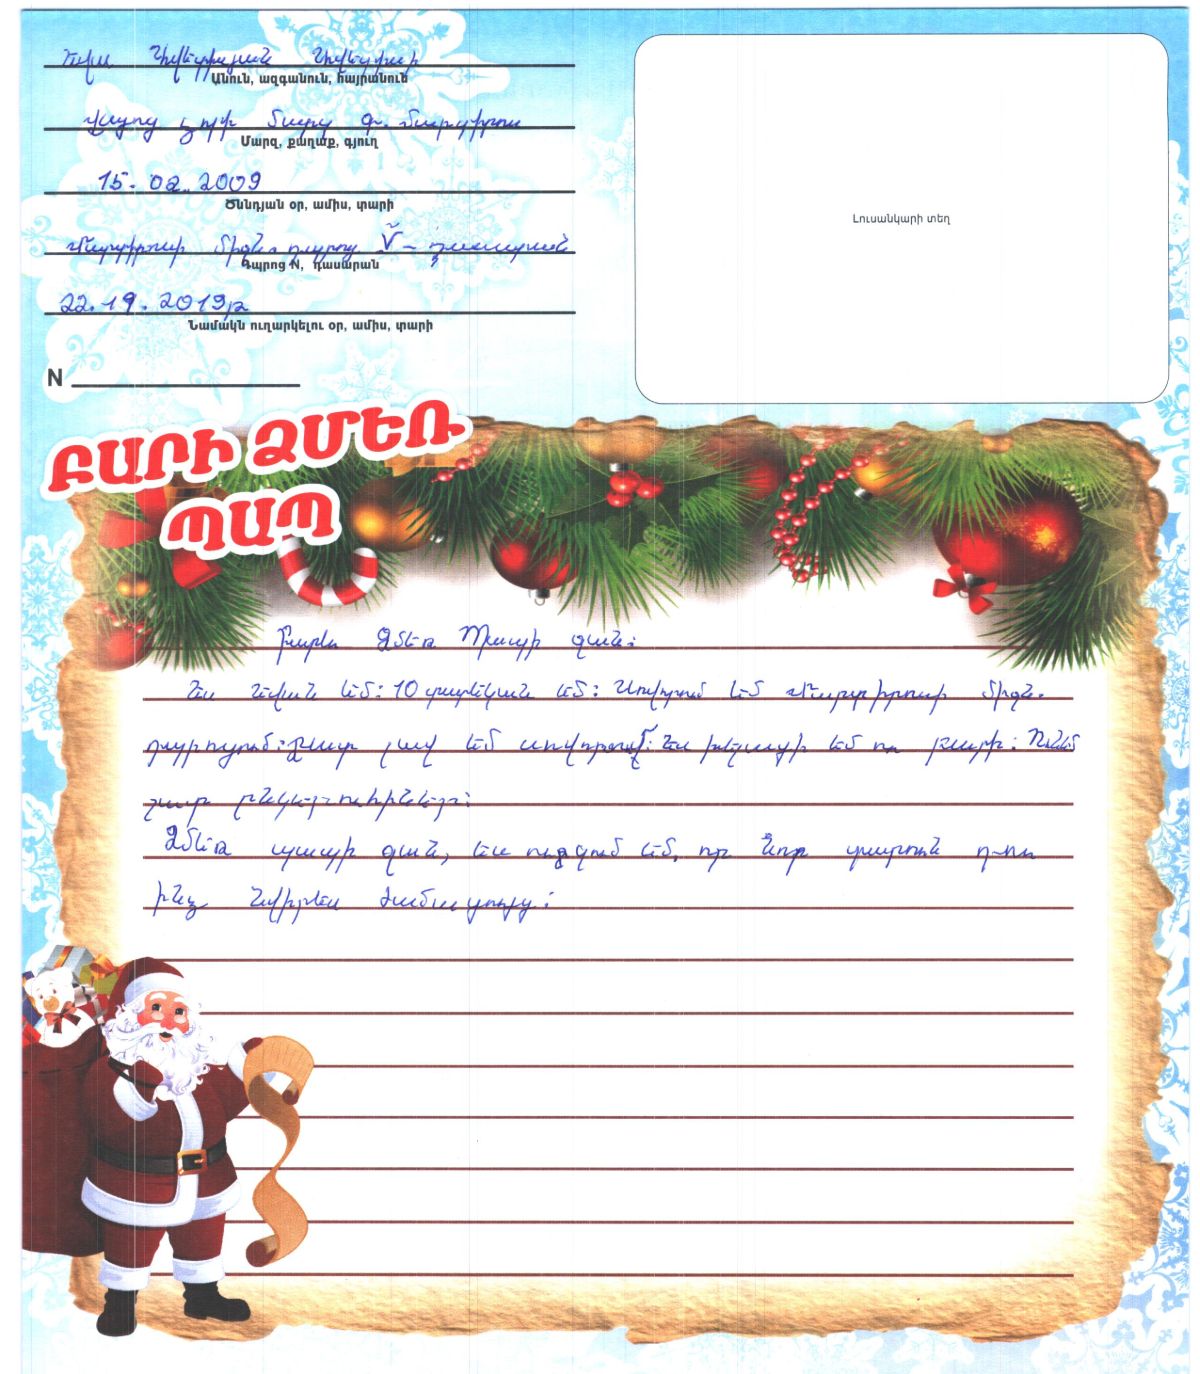 Անուն, ազգանուն, հայրանուն
Վայոց ձորի մարզ գ. Մարտիրոս
Մարզ, քաղաք, գյուղ
15. 02. 2009
Ծննդյան օր, ամիս, տարի
Մարտիրոսի միջն. դպրոց V դասարան
Դպրոց N, դասարան
22.19.2019թ
Նամակն ուղարկելու օր, ամիս, տարի
N
Լուսանկարի տեղ
ԲԱՐԻ ՁՄԵՌ
ՊԱՊ
Բարև Ձմեռ Պապի ջան:
Ես եմ: 10 տարեկան եմ: Սովորում եմ Մարտիրոսի միջն.
դպրոցում: Շատ լավ եմ սովորում: Ես խելացի եմ ու բարի: Ունեմ
շատ ընկերուհիներ:
Ձմեռ պապի ջան, ես ուզում եմ, որ նոր տարուն դու
ինձ նվիրես ժամացույց: